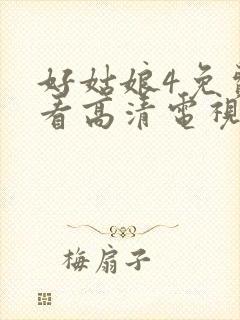 好姑娘4免
看高清電視
梅扇子